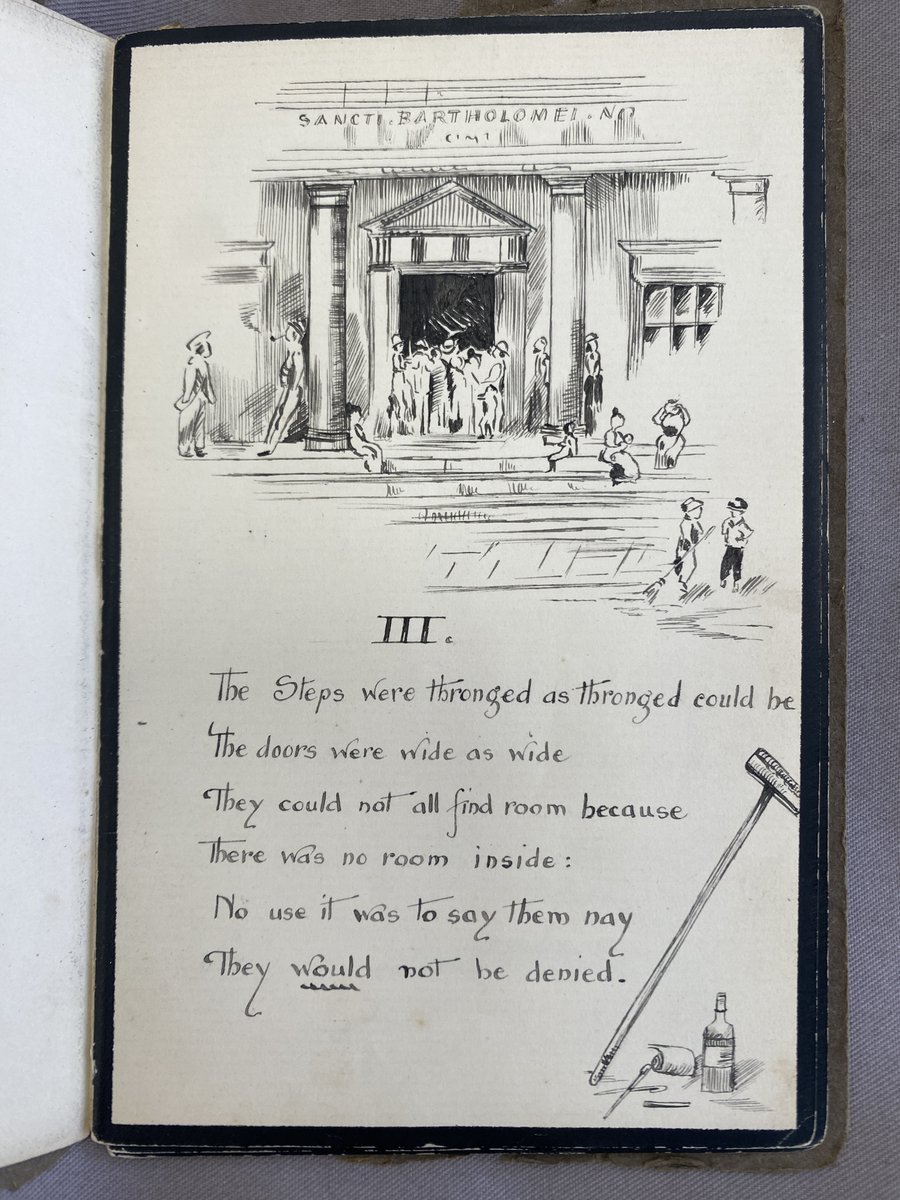 SANCTI . BARTHOLOMEI . NO
III.
The Steps were thronged as thronged could be
The doors were wide as wide
They could not all find room because
There was no room inside:
No use it was to say them nay
They would not be denied.